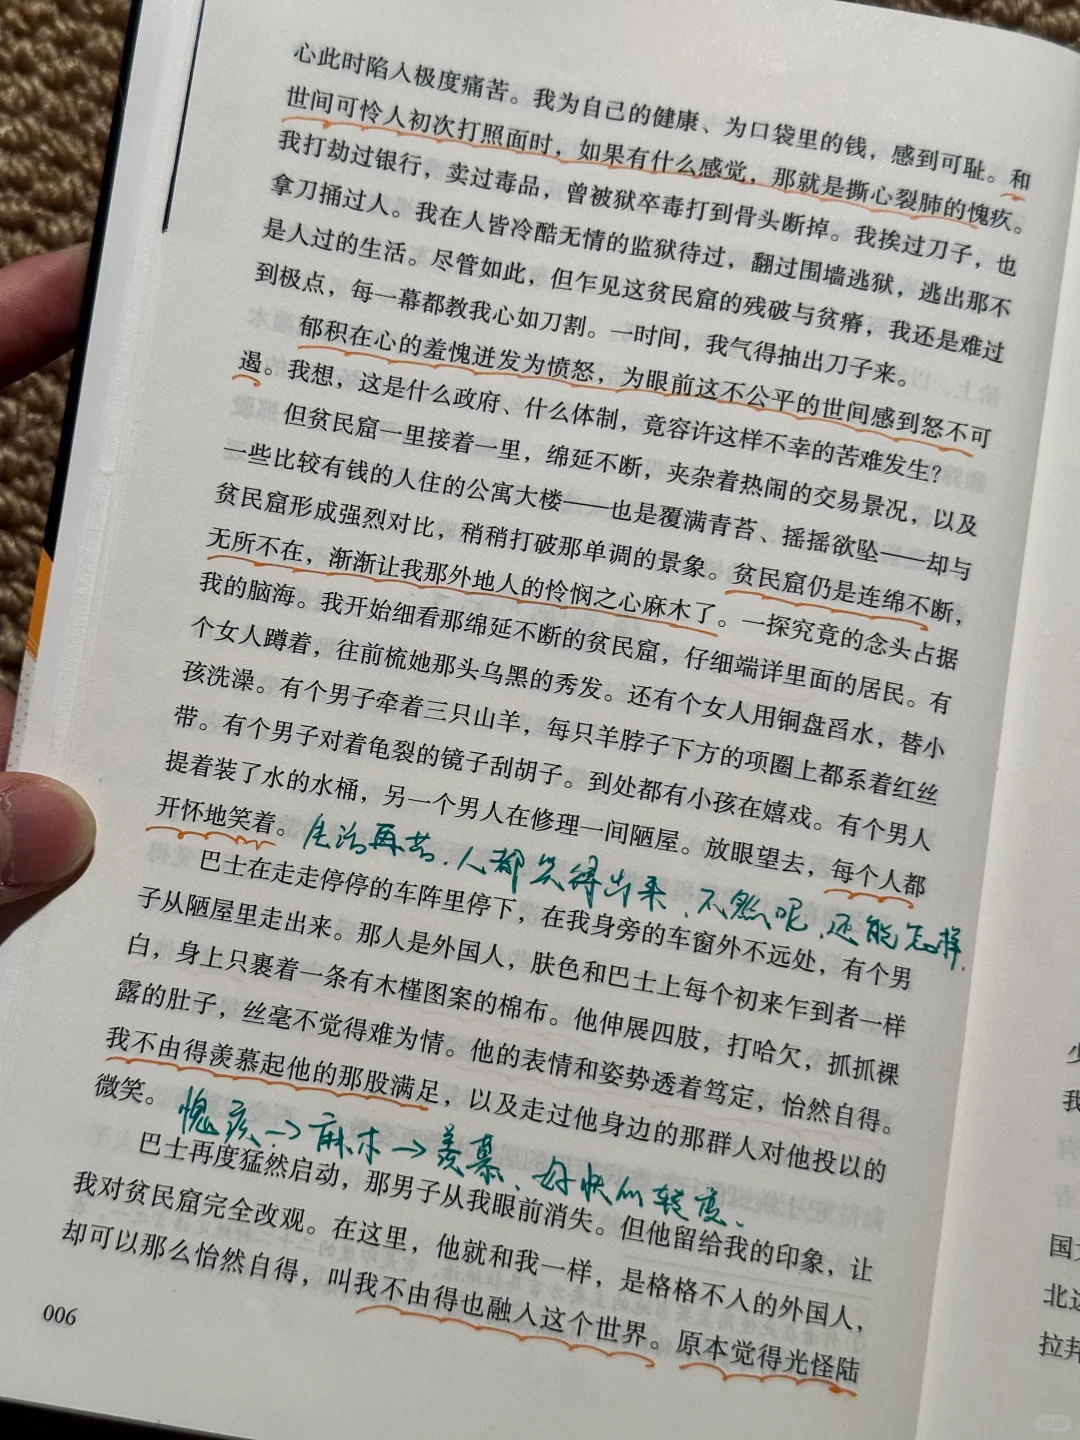 心此时陷入极度痛苦。我为自己的健康、为口袋里的钱，感到可耻。和
世间可怜人初次打照面时，如果有什么感觉，那就是撕心裂肺的愧疚。
我打劫过银行，卖过毒品，曾被狱卒毒打到骨头断掉。我挨过刀子，也
拿刀捅过人。我在人皆冷酷无情的监狱待过，翻过围墙逃狱，逃出那不
是人过的生活。尽管如此，但乍见这贫民窟的残破与贫瘠，我还是难过
到极点，每一幕都教我心如刀割。一时间，我气得抽出刀子来。
郁积在心的羞愧迸发为愤怒，为眼前这不公平的世间感到怒不可
遏。我想，这是什么政府、什么体制，竟容许这样不幸的苦难发生？
但贫民窟一里接着一里，绵延不断，夹杂着热闹的交易景况，以及
一些比较有钱的人住的公寓大楼——也是覆满青苔、摇摇欲坠——却与
贫民窟形成强烈对比，稍稍打破那单调的景象。贫民窟仍是连绵不断，
无所不在，渐渐让我那外地人的怜悯之心麻木了。一探究竟的念头占据
我的脑海。我开始细看那绵延不断的贫民窟，仔细端详里面的居民。有
个女人蹲着，往前梳她那头乌黑的秀发。还有个女人用铜盘舀水，替小
孩洗澡。有个男子牵着三只山羊，每只羊脖子下方的项圈上都系着红丝
带。有个男子对着龟裂的镜子刮胡子。到处都有小孩在嬉戏。有个男人
提着装了水的水桶，另一个男人在修理一间陋屋。放眼望去，每个人都
开怀地笑着。
生活再苦、人都笑得出来、不然呢、还能怎样、
巴士在走走停停的车阵里停下，在我身旁的车窗外不远处，有个男
子从陋屋里走出来。那人是外国人，肤色和巴士上每个初来乍到者一样
白，身上只裹着一条有木槿图案的棉布。他伸展四肢，打哈欠，抓抓裸
露的肚子，丝毫不觉得难为情。他的表情和姿势透着笃定，怡然自得。
我不由得羡慕起他的那股满足，以及走过他身边的那群人对他投以的
微笑。
愧疚→麻木→羡慕、好快的转变、
巴士再度猛然启动，那男子从我眼前消失。但他留给我的印象，让
我对贫民窟完全改观。在这里，他就和我一样，是格格不入的外国人，
却可以那么怡然自得，叫我不由得也融入这个世界。原本觉得光怪陆
006
少
我
国
北
拉